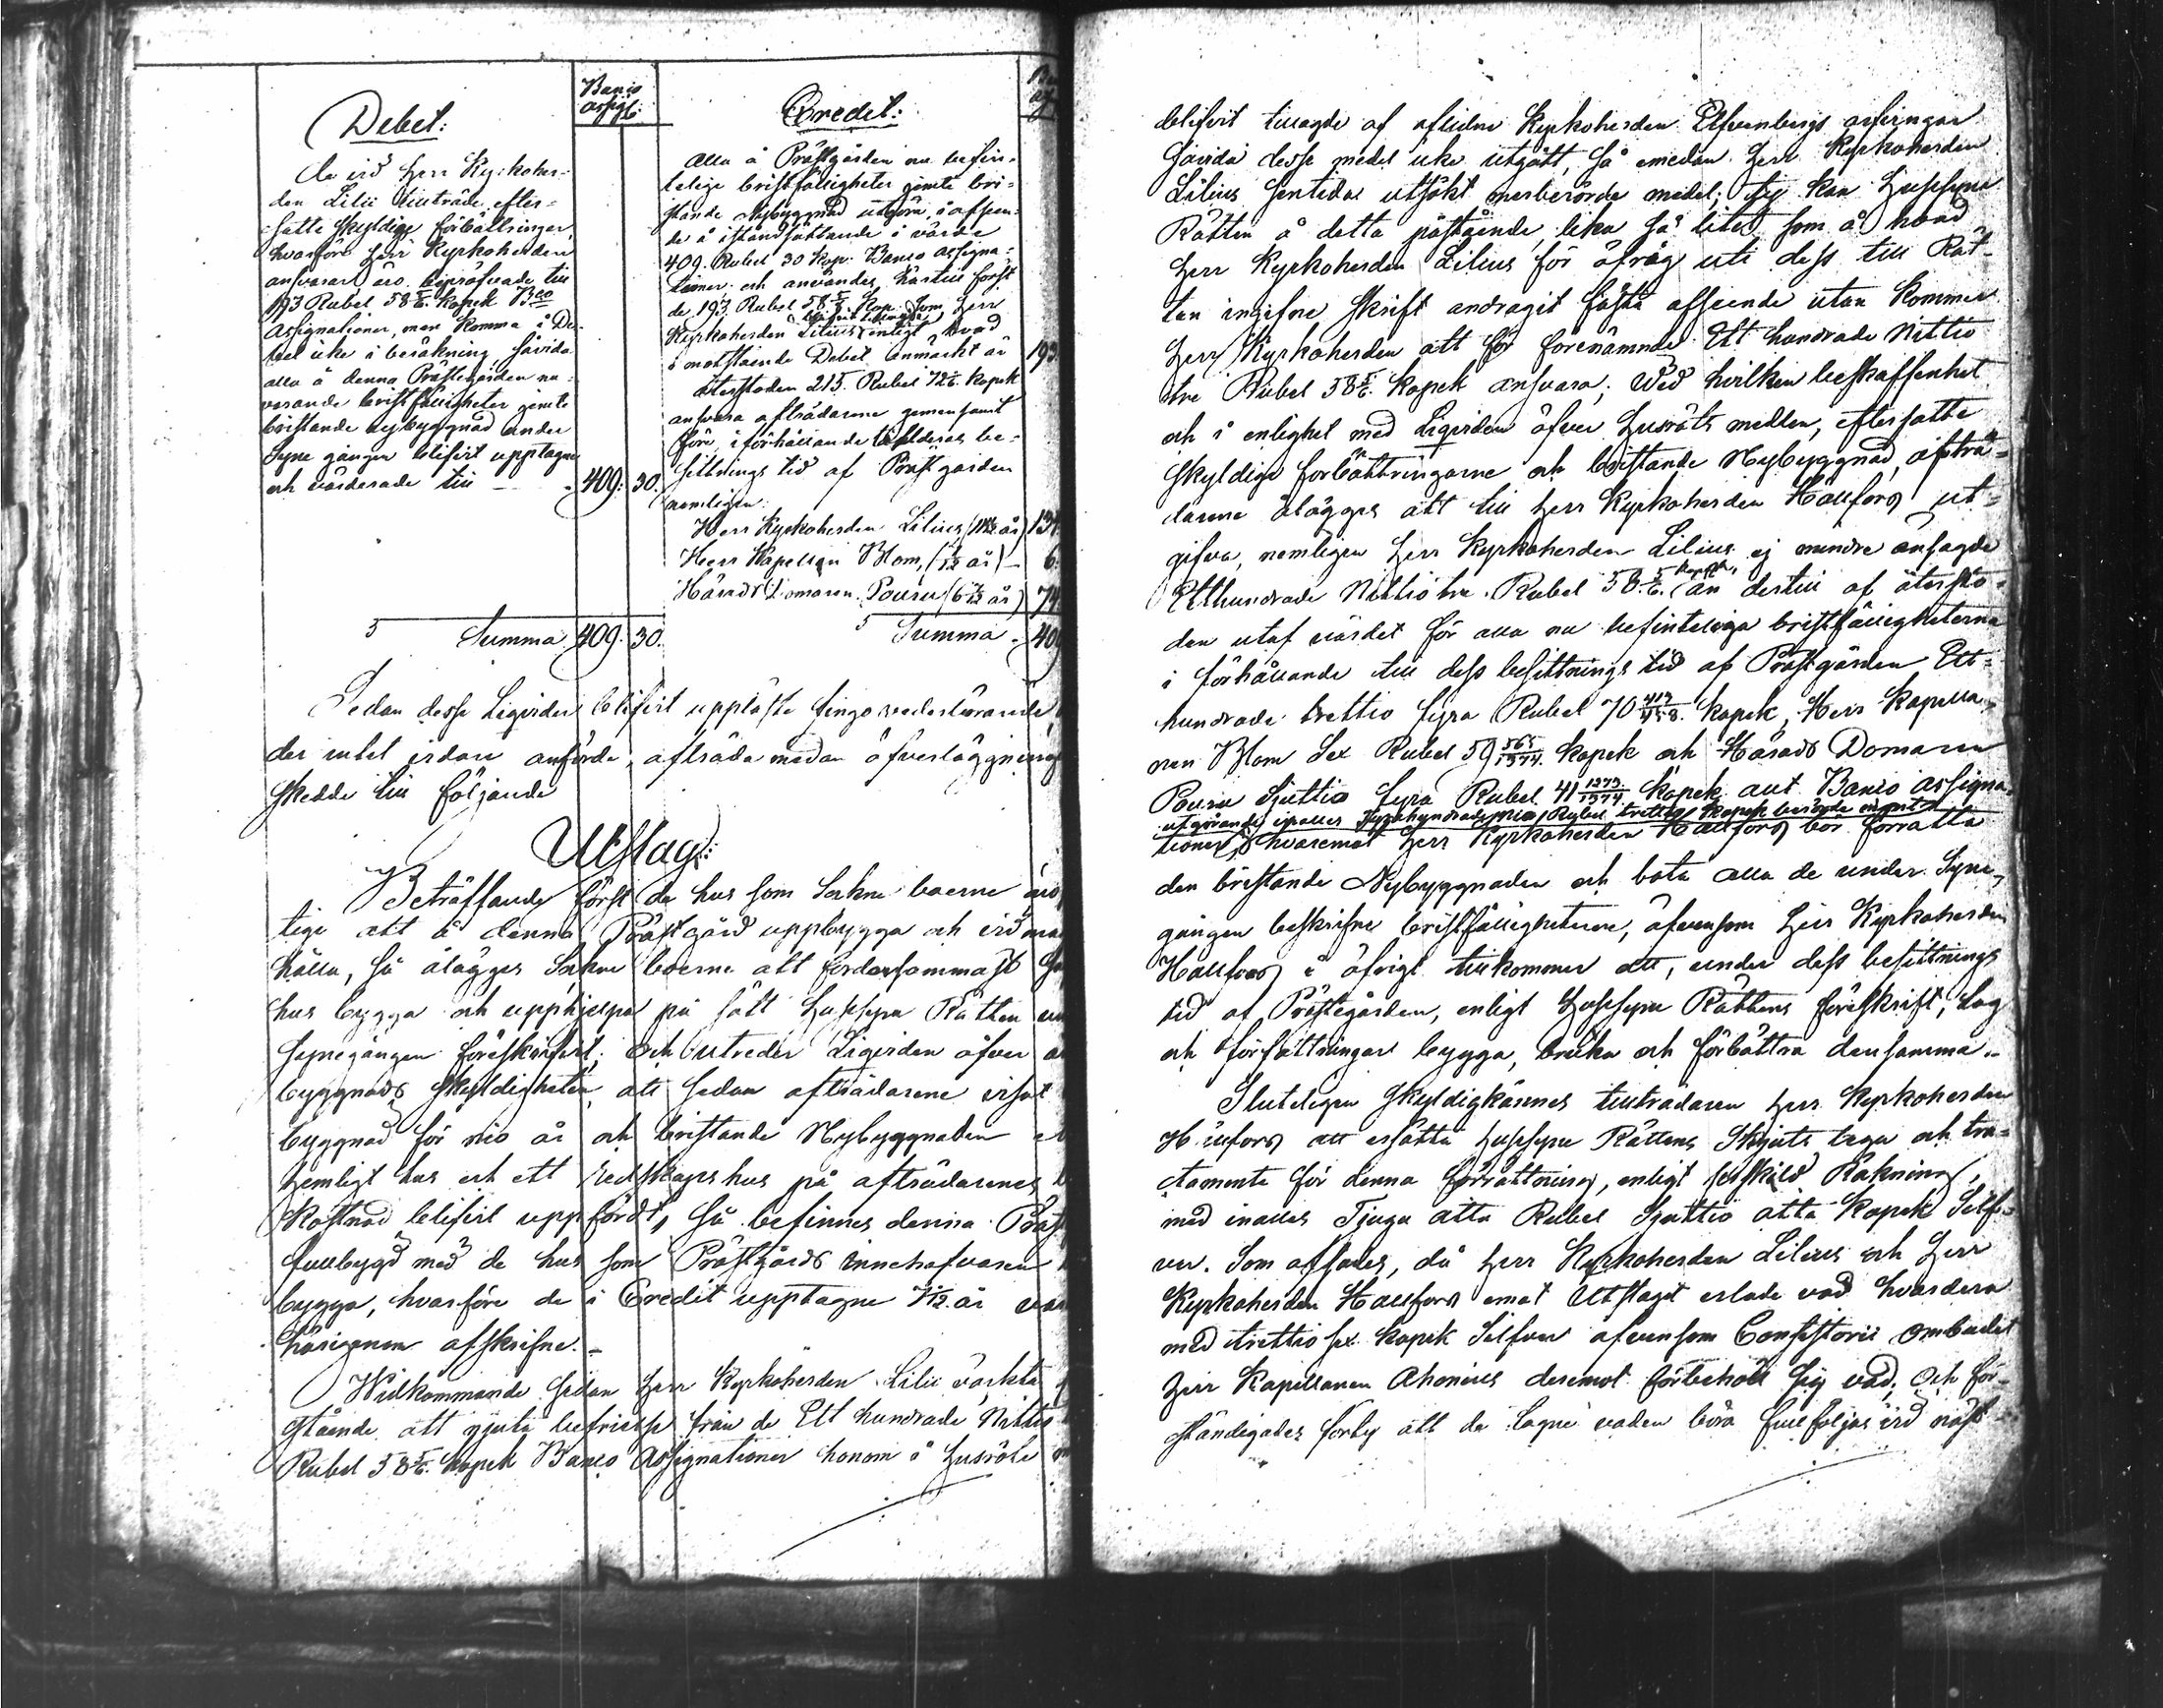 Banco
assigt:
Debet:
De vid Herr Kyrkoher-
den Lilii tillträde efter-
satte skyldige förbättringar,
hvarföre Herr Kyrkoherden
ansvarar äro bepröfvade till
193 Rubel 58 5/6 kopek Bco
Assignationer, men komma i De-
bet icke i beräkning, såvida
alla å denna Prästegården nu-
varande bristfälligheter jemte
bristande nybyggnad under
Syne gången blifvit upptagne
och värderade till — - 409: 30.
Summa 409: 30.
Credit:
Alla å Prästgården nu befin-
telige bristfälligheter jemte bri-
stande Nybyggnad utgöra, i afseen-
de å iståndsättande i värde
409. Rubel 30 kop. Banco Assigna-
tioner och användes härtill först
de 193. Rubel 58 5/6 kop. som Herr
Kyrkoherden Lilius enligt hvad
i motstående Debet anmärkt är 193
återstoden 215. Rubel 72 1/6. kopek
ansvara afträdarene gemensamt
före, i förhållande till deras be-
sittnings tid af Prästgården
nemligen:
Herr Kyrkoherden Lilius, 134
Herr Kapellan Blom, 6.
Härads Domaren Pousu (6 år) 74
Summa - 409
Sedan desse Liqvider blifvit uppläste fingo vederbörande,
der intet vidare anförde, afträda medan öfverläggning
skedde till följande
Utslag:
Beträffande först de hus som Sockne boerne äro
tige att å denna Prästgård uppbygga och vidmak
hålla, så ålägges Sockne boerne att fordersammast
hus bygga och upphjelpa på sätt Husesyne Rätten un
synegången föreskrifvit; Och utreder Liqviden öfver
byggnads skyldigheten, att sedan afträdarene visat
byggnad för nio år och bristande Nybyggnaden
hemligt hus och ett redskapshus på afträdarenes
kostnad blifvit uppfördt, så befinnes denna Präst
fullbygd med de hus som Prästgårds innehafvaren
bygga, hvarföre de i Credit upptagne år
härigenom afskrifne. -
Widkommande sedan Herr Kyrkoherden Lilii väckta
stående att njuta befrielse från de Ett hundrade Nittio
Rubel 58 5/6. kopek Banco Assignationer honom i Husröte
blifvit tillagde af aflidne Kyrkoherden Elfvenbergs arfvingar
såvida desse medel icke utgått, så emedan Herr Kyrkoherden
Lilius sentida utsökt merberörde medel; ty kan Husesyne
Rätten å detta påstående, lika så litet som å hvad
Herr Kyrkoherden Lilius för öfrig uti dess till Rät-
ten ingifne skrift andragit fästa afseende utan kommer
Herr Kyrkoherden att för förenämnde Ett hundrade Nittio
tre Rubel 58 5/6. kopek ansvara; Wid hvilken beskaffenhet
och i enlighet med Liqviden öfver Husröts medlen, eftersatte
skyldiga förbättringarne och bristande Nybyggnad, afträ-
darene ålägges att till Herr Kyrkoherden Hällfors ut-
gifva, nemligen Herr Kyrkoherden Lilius ej mindre ansagde
Etthundrade Nittio tre Rubel 58 5/6. kopek, än dertill af återsto-
den utaf värdet för alla nu befinteliga bristfälligheterne
i förhållande till dess besittnings tid af Prästgården Ett-
hundrade trettio fyra Rubel 70 413/458. kopek, Herr Kapella-
nen Blom Sex Rubel 59 565/1374. kopek och Härads Domaren
Pousu Sjuttio fyra Rubel 41 1373/1374. kopek allt Banco Assigna-
utgörande inalles Fyrahundrade nio Rubel trettio kopek berörde mynt
tioner, hvaremot Herr Kyrkoherden Hällfors bör förrätta
den bristande Nybyggnaden och bota alla de under Syne-
gången beskrifne bristfälligheterne, äfvensom Herr Kyrkoherden
Hällfors i öfrigt tillkommer att, under dess besittnings
tid af Prästegården, enligt Husesyne Rättens föreskrift, Lag
och författningar bygga, bruka och förbättra densamma. -
Slutligen skyldigkännes tillträdaren Herr Kyrkoherden
Hällfors att ersätta Husesyne Rättens Skjuts lega och tra-
ctamente för denna förrättning, enligt serskild Räkning,
med inalles Tjugu åtta Rubel Sjuttio åtta kopek Silf-
ver. Som afsades, då Herr Kyrkoherden Lilius och Herr
Kyrkoherden Hällfors emot Utslaget erlade vad hvardera
med trettio sex kopek Silfver äfvensom Consistorii ombudet
Herr Kapellanen Ahonius deremot förbehöll sig vad; Och för-
ständigades forthy att de tagne vaden böra fullföljas vid näst